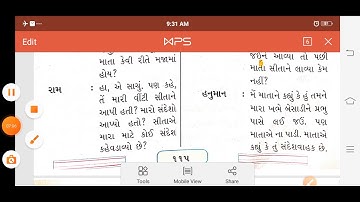 9:31 AM
Edit
WPS
6
માતા કેવી રીતે મજામાં
હોય?
રામ : હા, એ સાચું. પણ કહે,
તેં મારી વીંટી સીતાને
આપી હતી? મારો સંદેશો
આપ્યો હતો? સીતાએ
મારા માટે કોઈ સંદેશ
કહેવડાવ્યો છે?
જઈને આવ્યા તો પછી
માતા સીતાને લાવ્યા કેમ
નહીં?
હનુમાન : મેં માતાને કહ્યું કે હું તમને
મારા ખભે બેસાડીને પ્રભુ
પાસે લઈ જઉં. પણ
માતાએ ના પાડી. માતાએ
કહ્યું કે તું સંદેશવાહક છે.
૧૧૫
Tools
Mobile View
Share